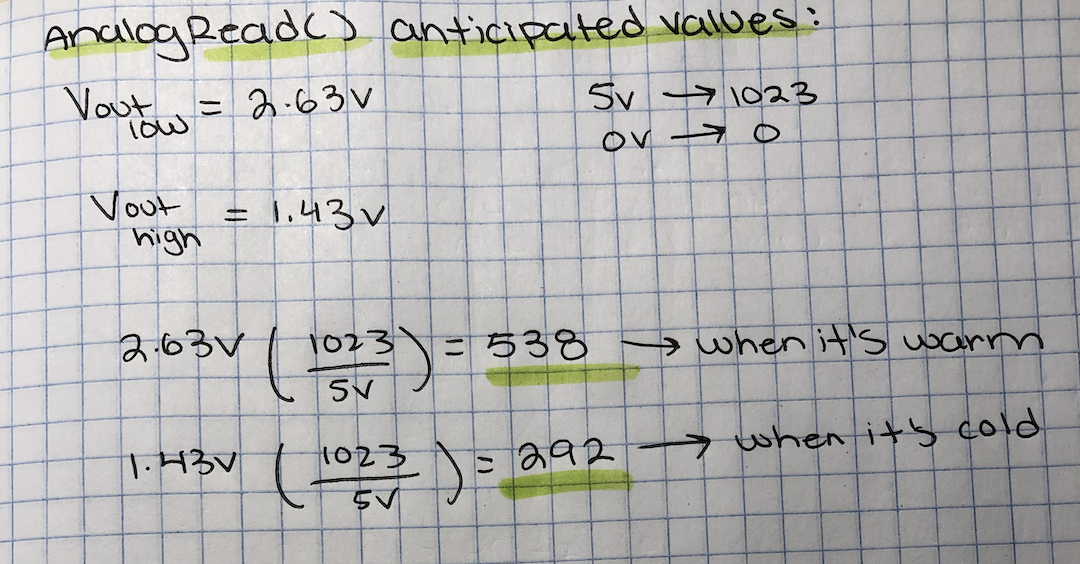 AnalogRead() anticipated values:
Vout low = 2.63V
5V → 1023
0V → 0
Vout high = 1.43V
2.63V (1023/5V) = 538 → when it's warm
1.43V (1023/5V) = 292 → when it's cold